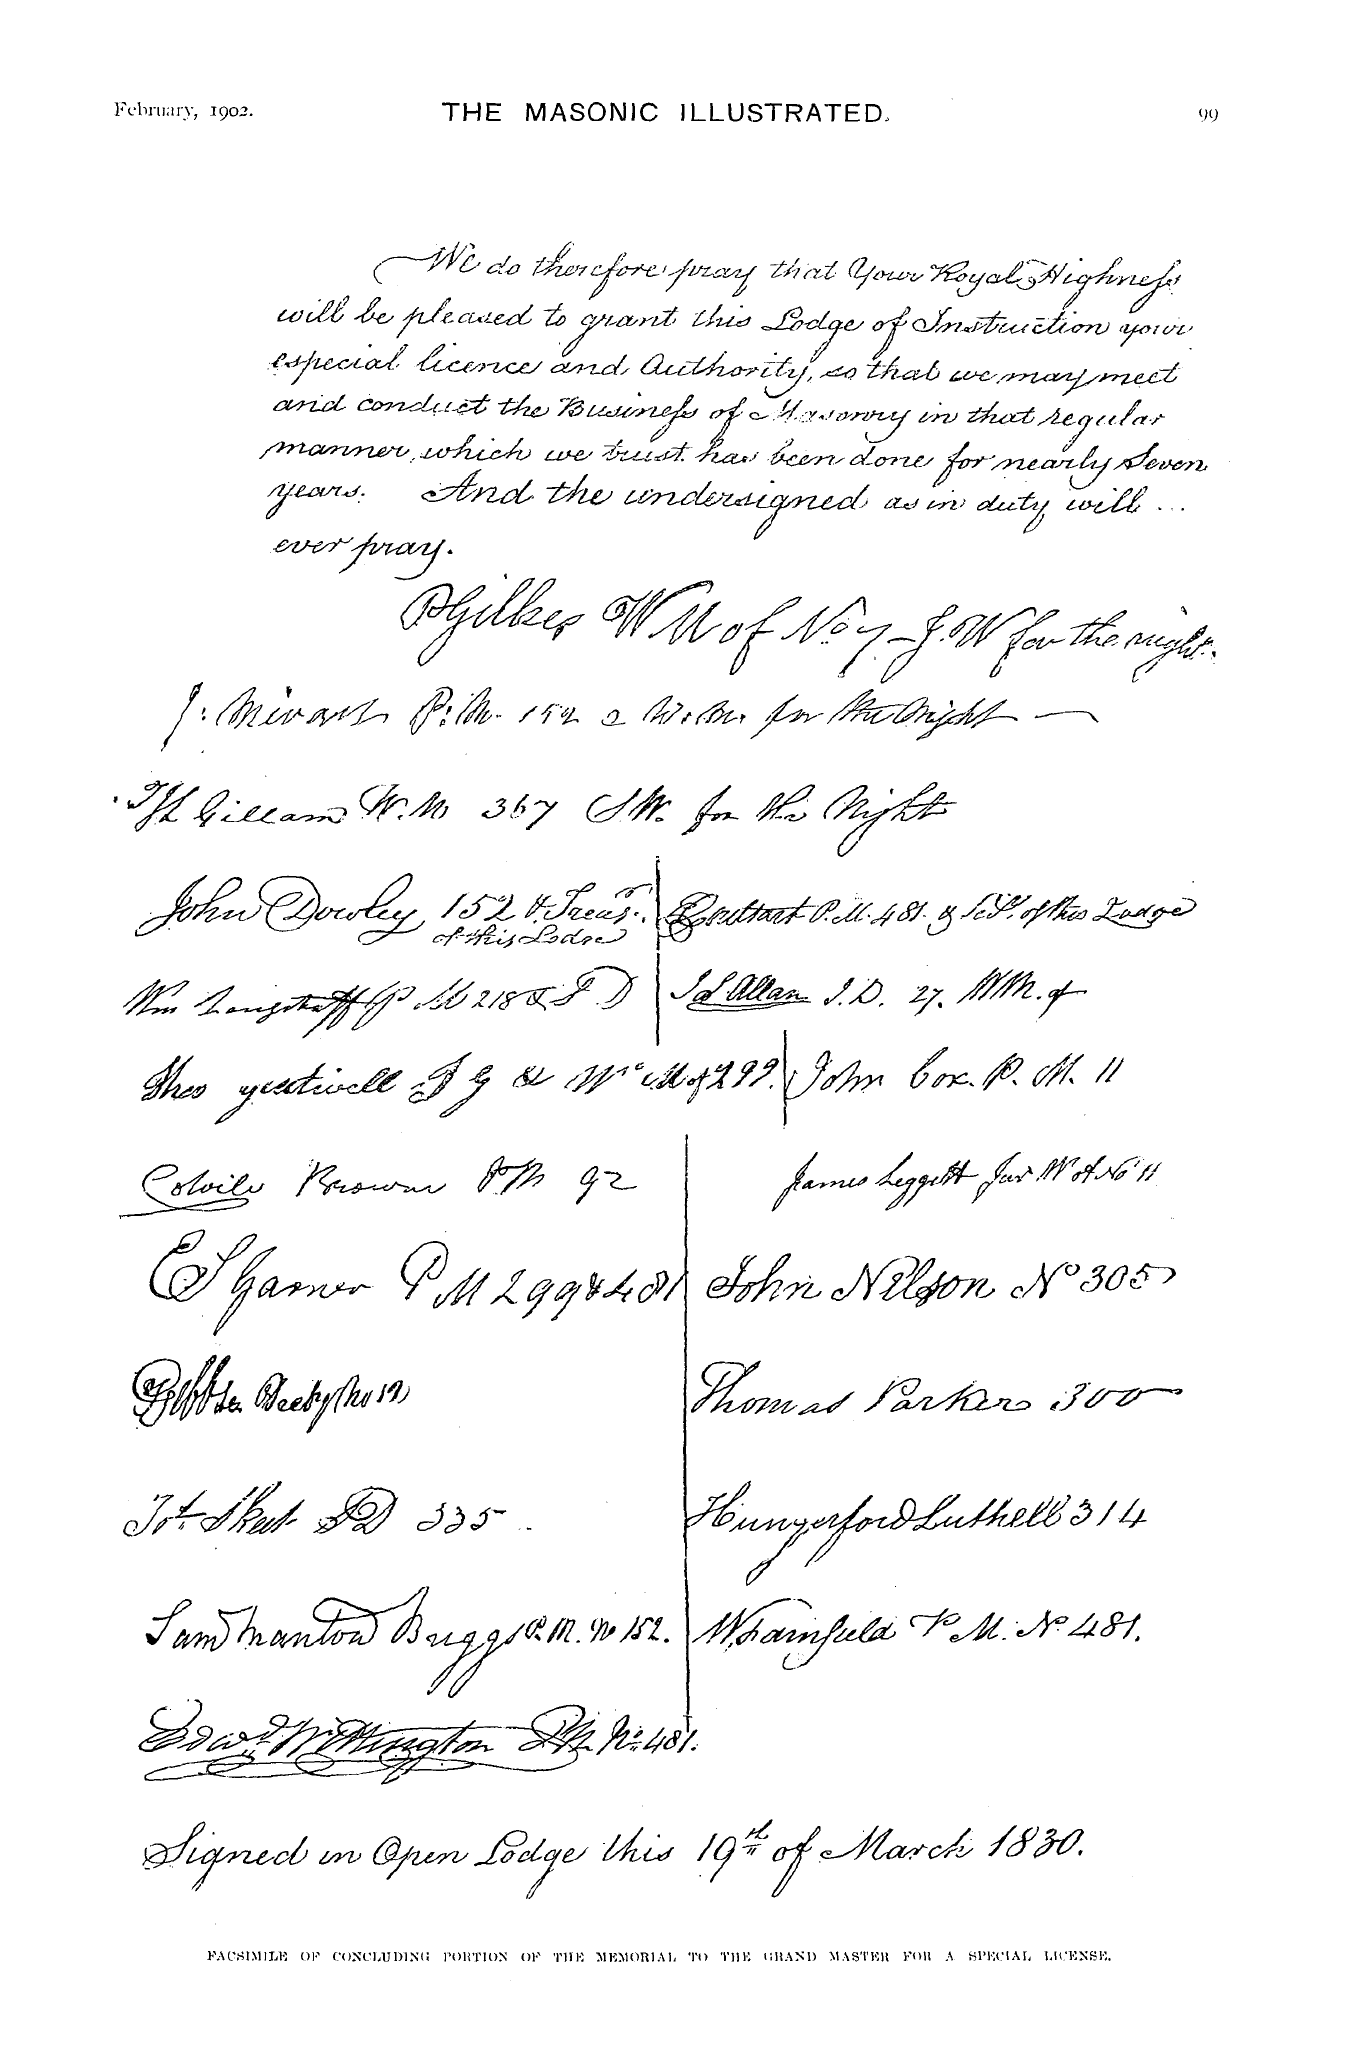 February, 1902.
THE MASONIC ILLUSTRATED.
99
We do therefore pray that Your Royal Highness
will be pleased to grant this Lodge of Instruction your
especial licence and Authority, so that we may meet
and conduct the Business of Masonry in that regular
manner, which we trust has been done for nearly Seven
years. And the undersigned as in duty will ...
ever pray.
PGilkes WM of No 7 – J.W for the night.
J: Mivart P:M. 152 W:M. for the Night —
Gillam W.M 367 SW. for the Night
John Dowley 152 & Treasr.
of this Lodge
P.M. 481. & Secy. of this Lodge
Wm Longstaff P M 218 & S D
Allan J.D. 27. WM. of
Thos J G & Wo M of 299.
John Cox. P. M. 11
Colvile Browne PM 92
James Leggett Jur W of No 11
E S Garner P M 299 & 481
John Nelson No 305
Beeby No 12
Thomas Parker 300
SD 335
Hungerford Luthell 314
Saml Manton Buggs P.M. No 152.
W. Fairfield P M. No. 481.
Edwd. Whittington P.M. No. 481.
Signed in Open Lodge this 19th of March 1830.
FACSIMILE OF CONCLUDING PORTION OF THE MEMORIAL TO THE GRAND MASTER FOR A SPECIAL LICENSE.